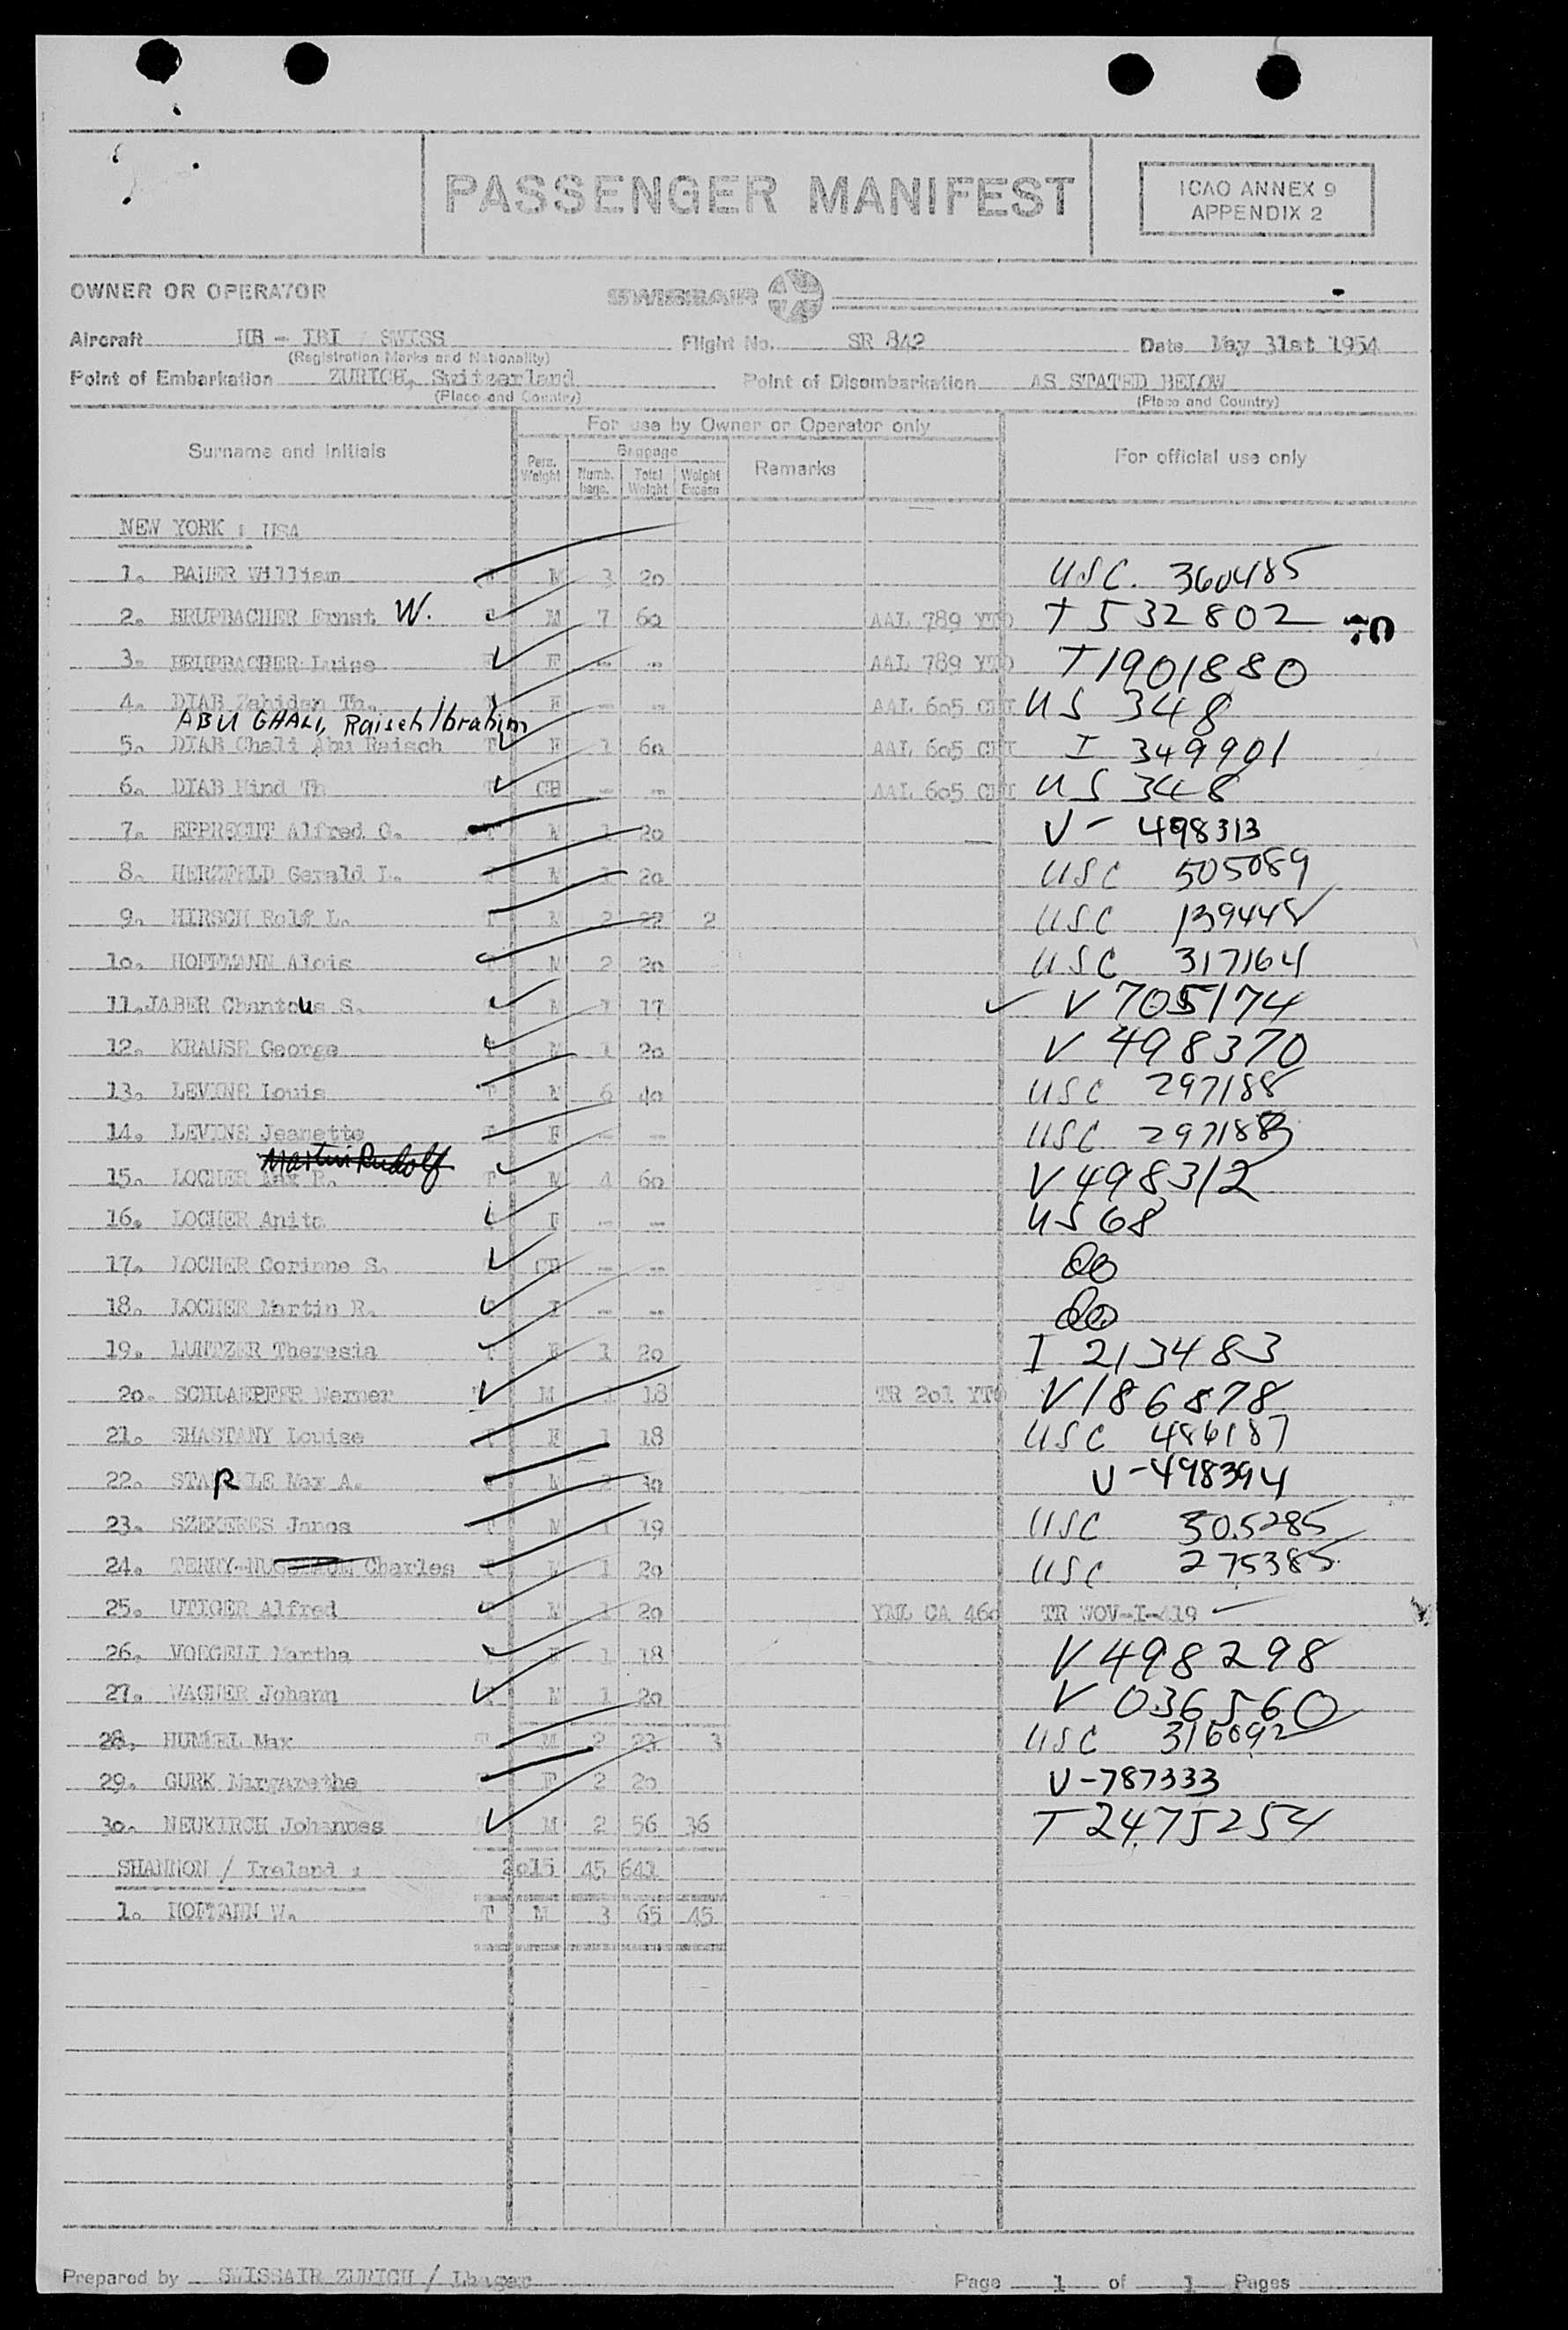 PASSENGER MANIFEST
ICAO ANNEX 9
APPENDIX 2
OWNER OR OPERATOR SWISSAIR
Aircraft HB - IBI / SWISS Flight No. SR 842 Date May 31st 1954
(Registration Marks and Nationality)
Point of Embarkation ZURICH, Switzerland Point of Disembarkation AS STATED BELOW
(Place and Country) (Place and Country)
For use by Owner or Operator only
Surname and Initials Pers. Weight Baggage Numb. bags. Total Weight Weight Excess Remarks For official use only
NEW YORK : USA
1. BAUER William T M 3 20 USC. 360485
2. BRUPBACHER Ernst W. M 7 60 AAL 789 YTO T 532802 70
3. BRUPBACHER Luise F -- -- AAL 789 YTO T1901880
4. DIAB Zahidan Th. F -- -- AAL 605 CHI US 348
ABU GHALI, Raiseh Ibrahim
5. DIAB Ghali Abu Raisch T F 1 60 AAL 605 CHI I 349901
6. DIAB Hind Th T CH -- -- AAL 605 CHI US 348
7. EPPRECHT Alfred C. T M 1 20 V- 498313
8. HERZFELD Gerald L. T M 1 20 USC 505089
9. HIRSCH Rolf L. T M 2 22 2 USC 139448
10. HOFFMANN Alois T M 2 20 USC 317164
11. JABER Chantous S. M 1 17 V 705174
12. KRAUSE George T M 1 20 V 498370
13. LEVINE Louis T M 6 40 USC 297188
14. LEVINE Jeanette T F -- -- USC 297188
Martin Rudolf
15. LOCHER Max R. T M 4 60 V 498312
16. LOCHER Anita T F -- -- US 68
17. LOCHER Corinne S. T CH -- -- do
18. LOCHER Martin R. T I -- -- do
19. LUNTZER Theresia T F 1 20 I 213483
20. SCHLAEPFER Werner T M 1 18 TR 201 YTO V186878
21. SHASTANY Louise T F 1 18 USC 486187
22. STARKLE Max A. M 2 30 V-498394
23. SZEKERES Janos T M 1 19 USC 305285
24. TERRY- Charles T M 1 20 USC 275385
25. UTIGER Alfred T M 1 20 YUL CA 460 TR WOV-I-419
26. VOEGELI Martha T F 1 18 V498298
27. WAGNER Johann T M 1 20 V 036560
28. HUMMEL Max T M 2 23 3 USC 316092
29. GURK Margarethe T F 2 20 V-787333
30. NEUKIRCH Johannes M 2 56 36 T 2475254
SHANNON / Ireland : 2015 45 641
1. HOFMANN W. T M 3 65 45
Prepared by SWISSAIR ZURICH / Page 1 of 1 Pages